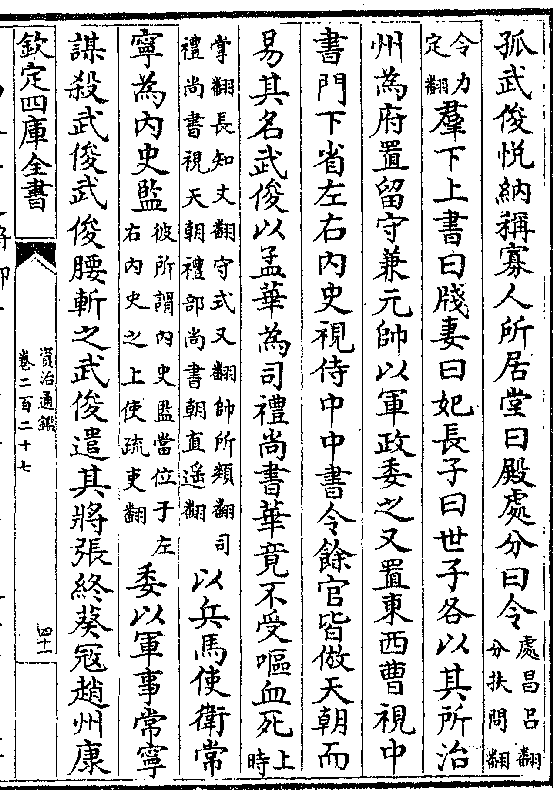 孤武俊悦納稱寡人所居堂曰殿處分曰令處昌吕翻分扶問翻
令力定翻羣下上書曰牋妻曰妃長子曰世子各以其所治
州為府置留守兼元帥以軍政委之又置東西曹視中
書門下省左右内史視侍中中書令餘官皆倣天朝而
易其名武俊以孟華為司禮尚書華竟不受嘔血死上時
掌翻長知丈翻守式又翻帥所類翻司禮尚書視天朝禮部尚書朝直遥翻以兵馬使衛常
寧為内史監彼所謂内史監當位于左右内史之上使疏吏翻委以軍事常寧
謀殺武俊武俊腰斬之武俊遣其將張終葵寇趙州康
欽定四庫全書
資治通鑑
卷二百二十七
四十一